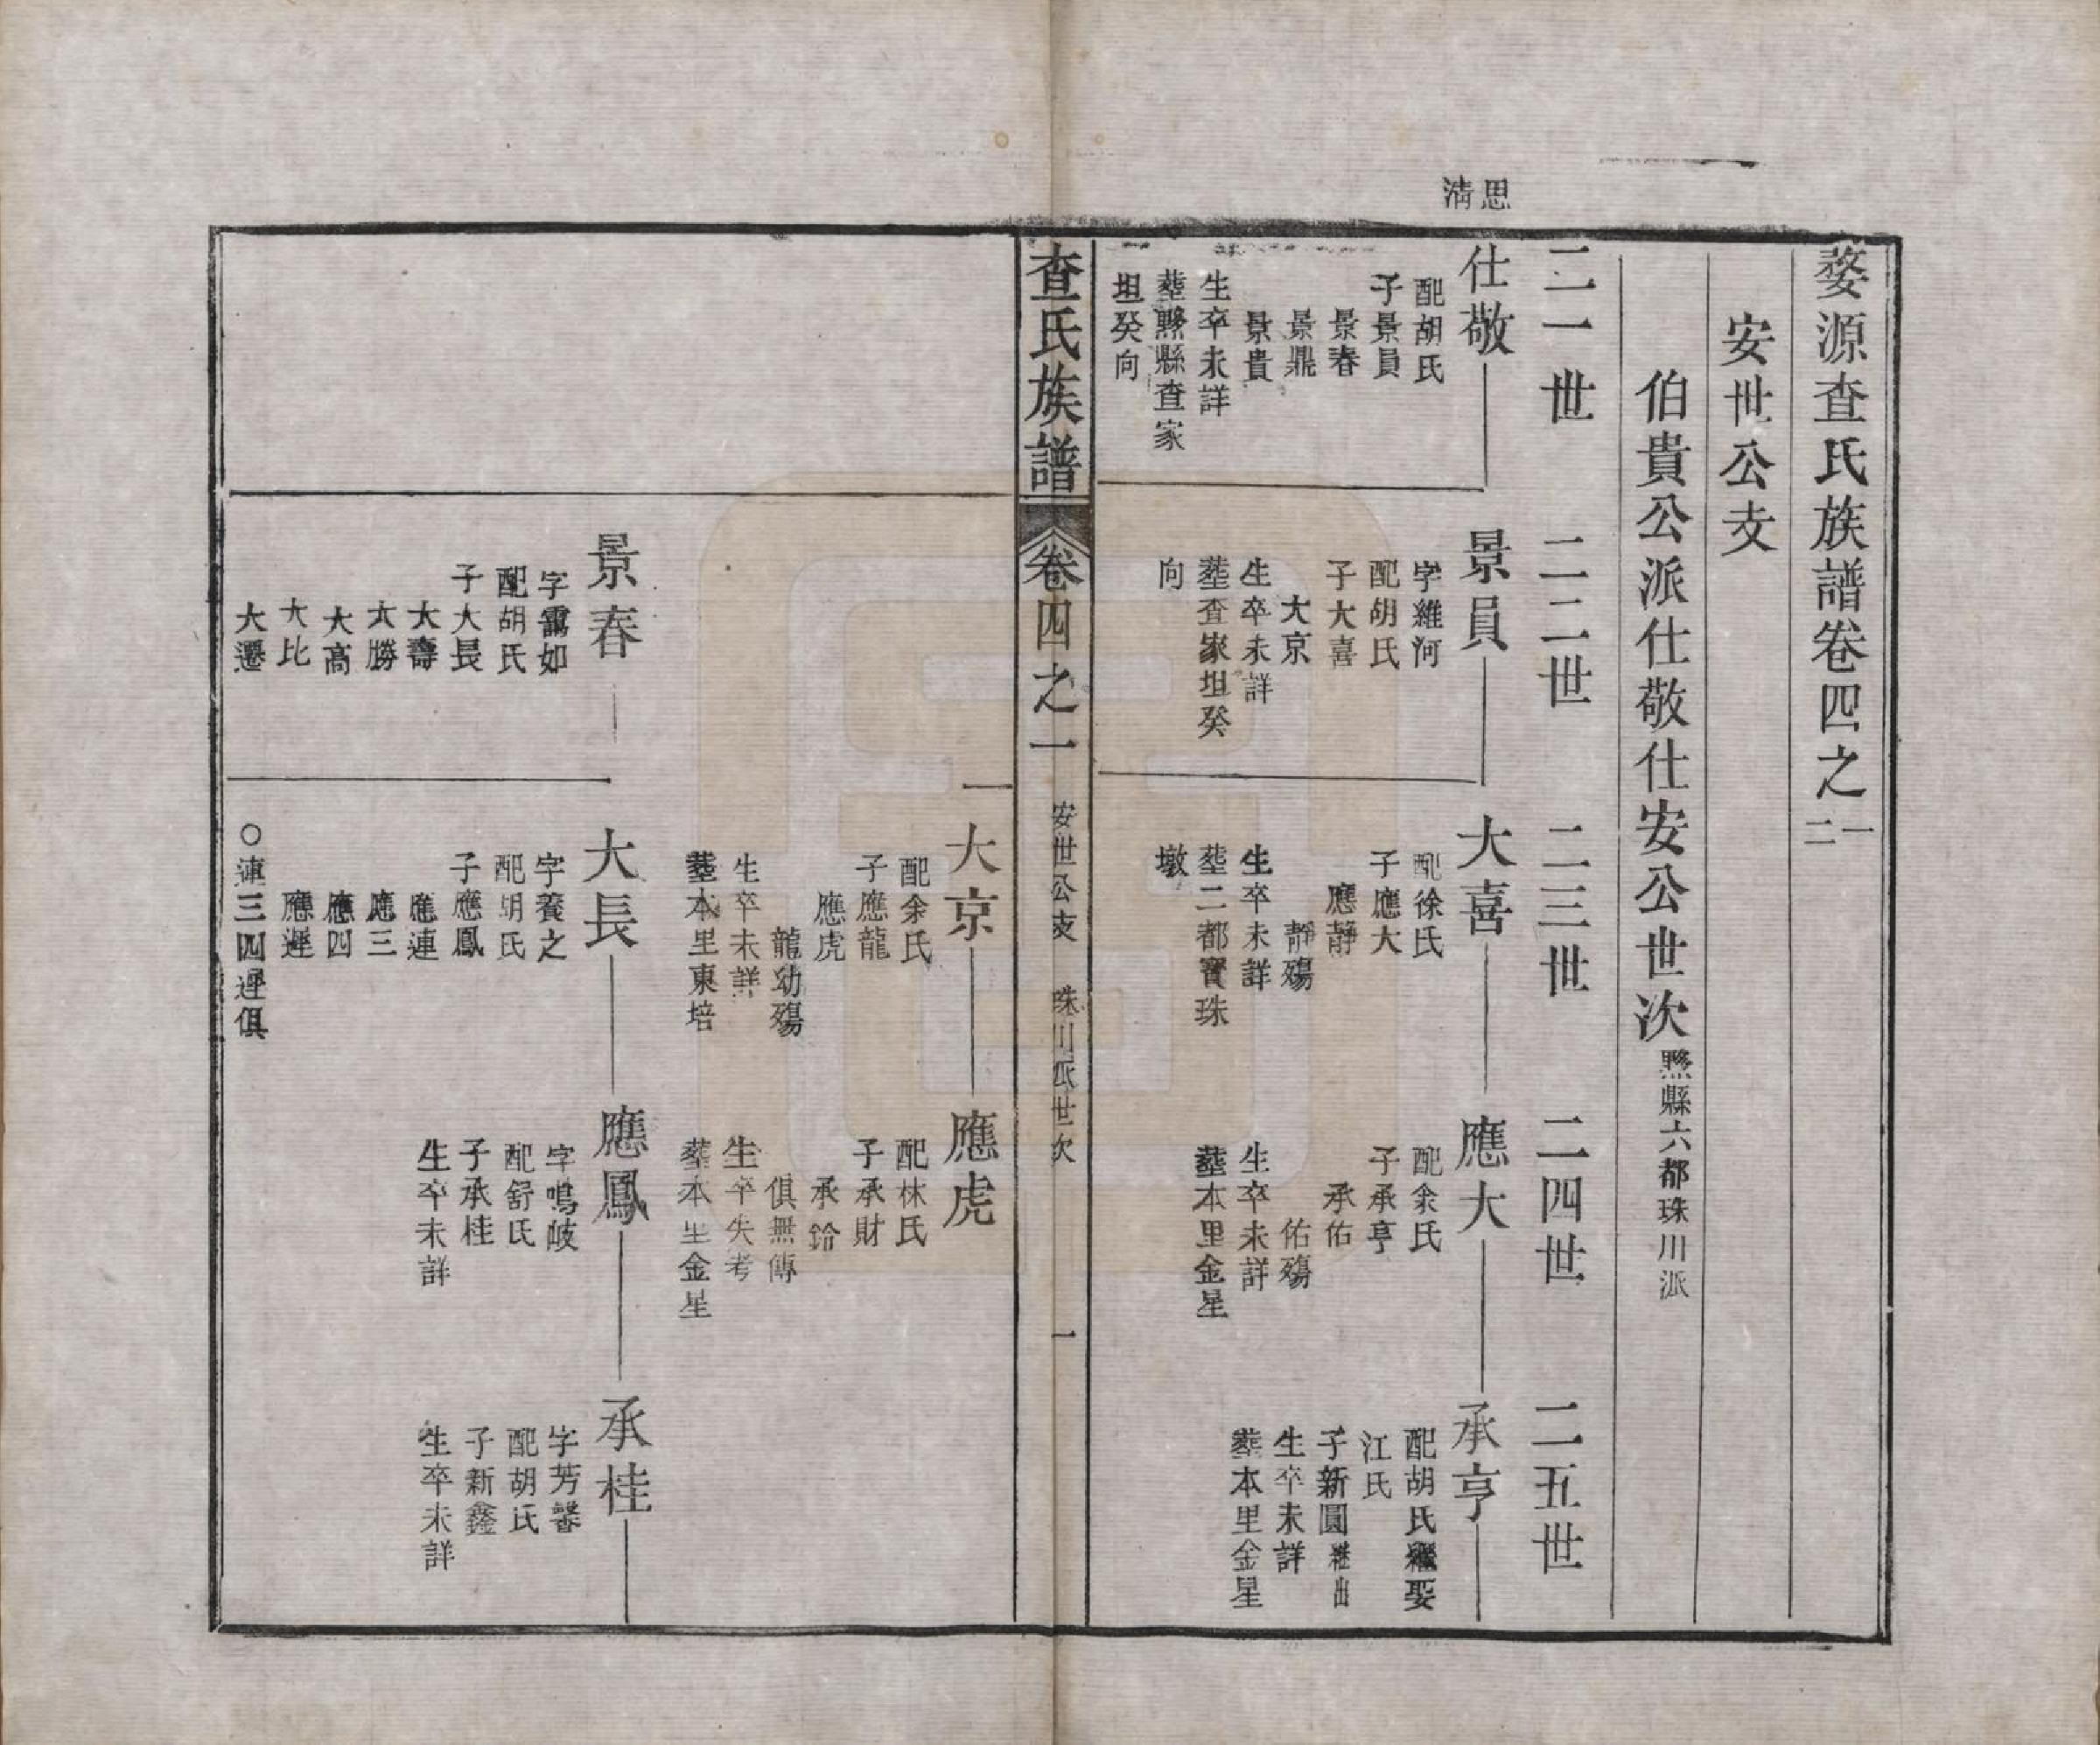 婺源查氏族譜卷四之一
二
安世公支
伯貴公派仕敬仕安公世次
黟縣六都珠川派
二一世
二二世
二三世
二四世
二五世
思
清
仕敬
配胡氏
子景員
景春
景鼎
景貴
生卒未詳
塟黟縣查家
坦癸向
景員
字維河
配胡氏
子大喜
大京
生卒未詳
塟查家坦癸
向
大喜
配徐氏
子應大
應靜
靜殤
生卒未詳
塟二都寶珠
墩
應大
配余氏
子承亨
承佑
佑殤
生卒未詳
塟本里金星
承亨
配胡氏繼娶
江氏
子新圓繼出
生卒未詳
塟本里金星
查氏族譜
卷四之一
安世公支
珠川派世次
一
大京
配余氏
子應龍
應虎
龍幼殤
生卒未詳
塟本里東培
應虎
配林氏
子承財
承鈴
俱無傳
生卒失考
塟本里金星
景春
字靄如
配胡氏
子大長
大壽
大勝
大高
大比
大遷
大長
字養之
配胡氏
子應鳳
應連
應三
應四
應遲
○連三四遲俱
應鳳
字鳴岐
配舒氏
子承桂
生卒未詳
承桂
字芳馨
配胡氏
子新鑫
生卒未詳